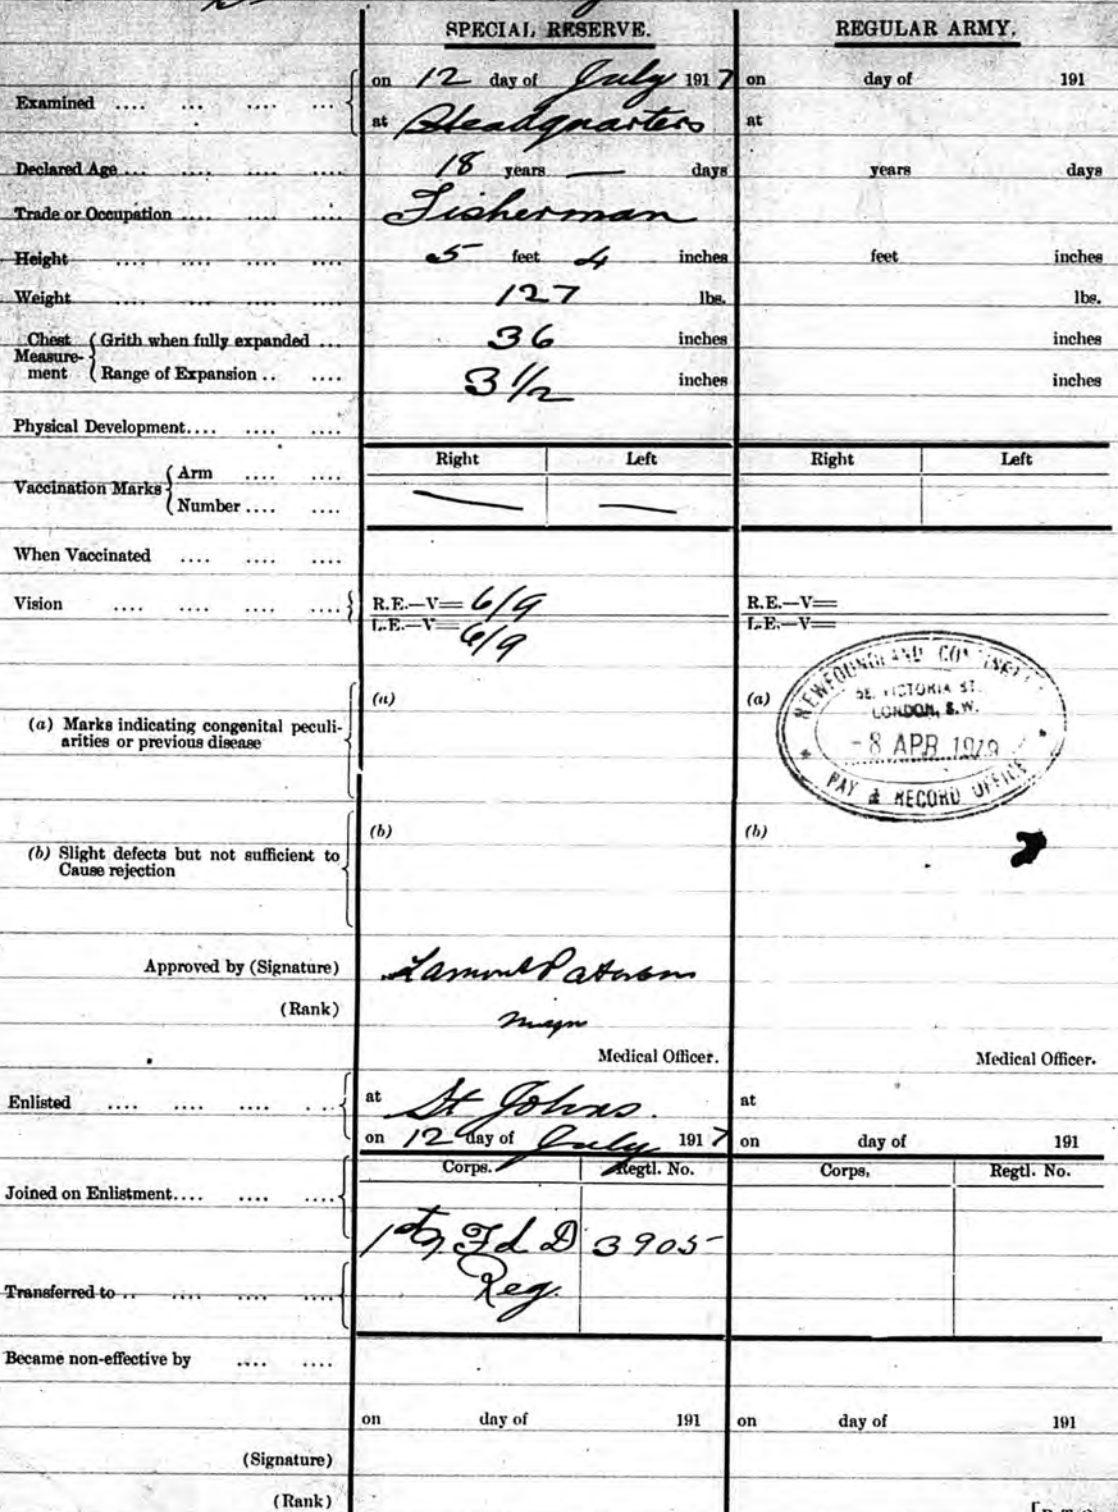 SPECIAL RESERVE. REGULAR ARMY.
Examined .... ... .... ... on 12 day of July 1917 on day of 191
at Headquarters at
Declared Age ... .... .... .... 18 years — days years days
Trade or Occupation .... .... .... Fisherman
Height .... .... .... .... 5 feet 4 inches feet inches
Weight .... .... .... .... 127 lbs. lbs.
Chest Measure-ment Grith when fully expanded ... 36 inches inches
Range of Expansion .. .... 3 1/2 inches inches
Physical Development.... .... ....
Right Left Right Left
Vaccination Marks Arm .... ....
Number .... .... — —
When Vaccinated .... .... ....
Vision .... .... .... .... R.E.—V= 6/9 R.E.—V=
L.E.—V= 6/9 L.E.—V=
NEWFOUNDLAND CONTINGENT
58, VICTORIA ST.
LONDON, S.W.
- 8 APR 1919
PAY & RECORD OFFICE
(a) (a)
(a) Marks indicating congenital peculi-
arities or previous disease
(b) (b)
(b) Slight defects but not sufficient to
Cause rejection
Approved by (Signature) Lamont Paterson
(Rank) Major
Medical Officer. Medical Officer.
Enlisted .... .... .... ... at St Johns. at
on 12 day of July 1917 on day of 191
Corps. Regtl. No. Corps, Regtl. No.
Joined on Enlistment.... .... ....
1st Fd D 3905
Reg.
Transferred to .. .... .... ....
Became non-effective by .... ....
on day of 191 on day of 191
(Signature)
(Rank)